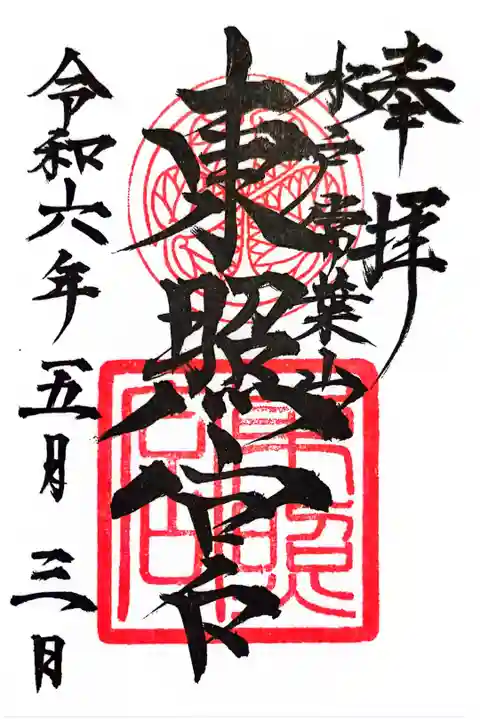 奉拝
水戸常葉山
東照宮
東照宮
令和六年五月三日